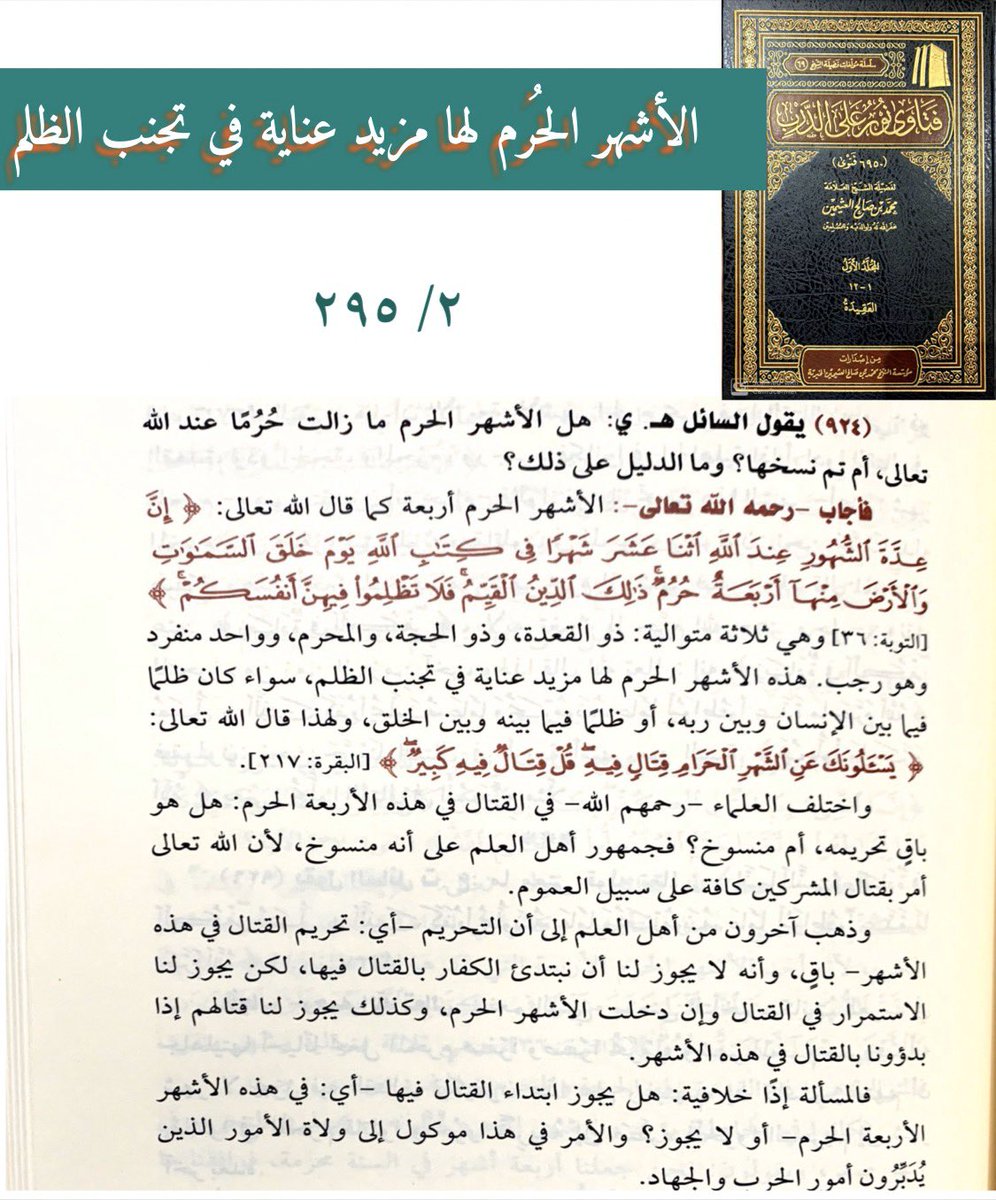 سلسلة مؤلفات فضيلة الشيخ (٦٩)
فتاوى نور على الدرب
(٦٩٥٠ فتوى)
لفضيلة الشيخ العلامة
محمد بن صالح العثيمين
غفر الله له ولوالديه وللمسلمين
المجلد الأول
١-١٢
العقيدة
من إصدارات
مؤسسة الشيخ محمد بن صالح العثيمين الخيرية
الأشهر الحُرُم لها مزيد عناية في تجنب الظلم
٢/ ٢٩٥
(٩٢٤) يقول السائل هـ. ي: هل الأشهر الحرم ما زالت حُرُمًا عند الله
تعالى، أم تم نسخها؟ وما الدليل على ذلك؟
فأجاب -رحمه الله تعالى-: الأشهر الحرم أربعة كما قال الله تعالى: ﴿ إِنَّ
عِدَّةَ الشُّهُورِ عِندَ اللَّهِ اثْنَا عَشَرَ شَهْرًا فِي كِتَٰبِ اللَّهِ يَوْمَ خَلَقَ السَّمَٰوَٰتِ
وَالْأَرْضَ مِنْهَآ أَرْبَعَةٌ حُرُمٌ ۚ ذَٰلِكَ الدِّينُ الْقَيِّمُ ۚ فَلَا تَظْلِمُوا۟ فِيهِنَّ أَنفُسَكُمْ ۚ ﴾
[التوبة: ٣٦] وهي ثلاثة متوالية: ذو القعدة، وذو الحجة، والمحرم، وواحد منفرد
وهو رجب. هذه الأشهر الحرم لها مزيد عناية في تجنب الظلم، سواء كان ظلمًا
فيما بين الإنسان وبين ربه، أو ظلمًا فيما بينه وبين الخلق، ولهذا قال الله تعالى:
﴿ يَسْـَٔلُونَكَ عَنِ الشَّهْرِ الْحَرَامِ قِتَالٍ فِيهِ ۖ قُلْ قِتَالٌ فِيهِ كَبِيرٌ ۖ ﴾ [البقرة: ٢١٧].
واختلف العلماء -رحمهم الله- في القتال في هذه الأربعة الحرم: هل هو
باقٍ تحريمه، أم منسوخ؟ فجمهور أهل العلم على أنه منسوخ، لأن الله تعالى
أمر بقتال المشركين كافة على سبيل العموم.
وذهب آخرون من أهل العلم إلى أن التحريم -أي: تحريم القتال في هذه
الأشهر- باقٍ، وأنه لا يجوز لنا أن نبتدئ الكفار بالقتال فيها، لكن يجوز لنا
الاستمرار في القتال وإن دخلت الأشهر الحرم، وكذلك يجوز لنا قتالهم إذا
بدؤونا بالقتال في هذه الأشهر.
فالمسألة إذًا خلافية: هل يجوز ابتداء القتال فيها -أي: في هذه الأشهر
الأربعة الحرم- أو لا يجوز؟ والأمر في هذا موكول إلى ولاة الأمور الذين
يُدَبِّرُون أمور الحرب والجهاد.